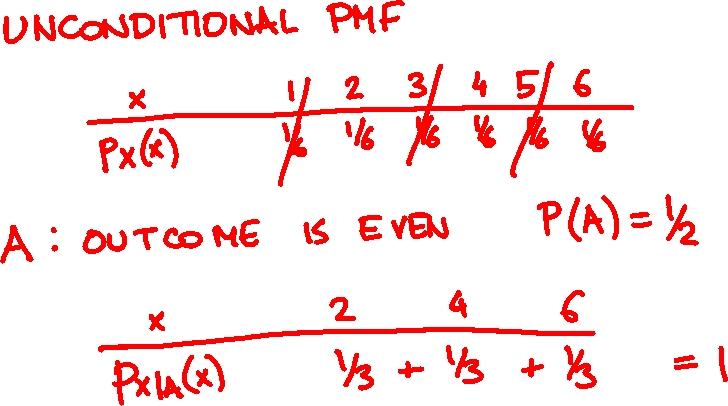 UNCONDITIONAL PMF
x 1 2 3 4 5 6
Px(x) 1/6 1/6 1/6 1/6 1/6 1/6
A : OUTCOME IS EVEN P(A) = 1/2
x 2 4 6
Px|A(x) 1/3 + 1/3 + 1/3 = 1